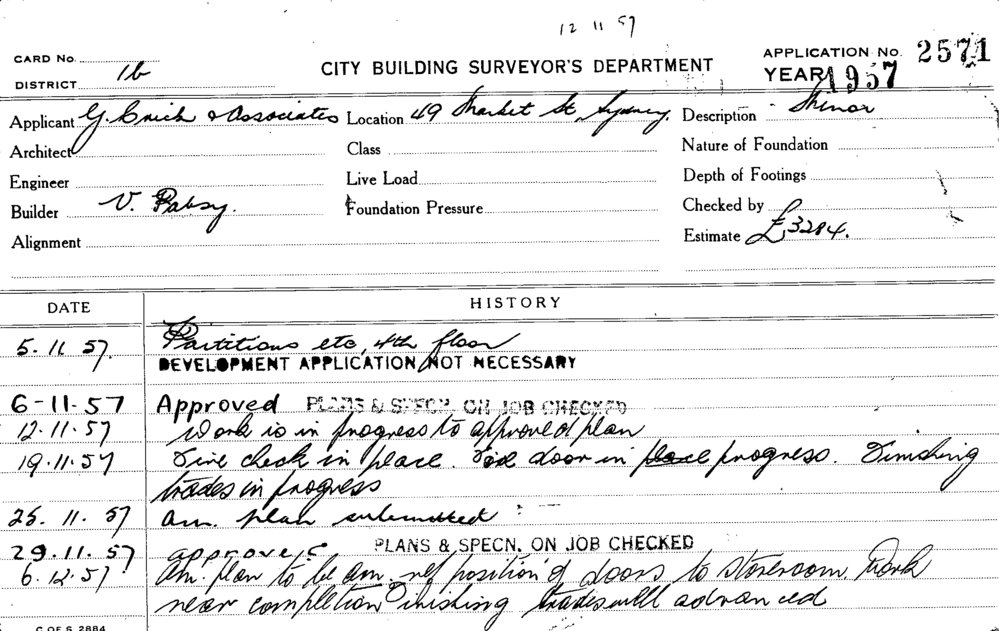 12 11 57
CARD No.
DISTRICT 1b
CITY BUILDING SURVEYOR'S DEPARTMENT
APPLICATION No. 2571
YEAR 1957
Applicant G. & Associates
Location 49 Market St, Sydney.
Description Minor
Architect
Class
Nature of Foundation
Engineer
Live Load
Depth of Footings
Builder V.
Foundation Pressure
Checked by
Alignment
Estimate £3284.
DATE
HISTORY
5.11.57. Partitions etc, 4th floor
DEVELOPMENT APPLICATION NOT NECESSARY
6-11-57 Approved PLANS & SPECN. ON JOB CHECKED
12.11.57 Work is in progress to approved plan
19.11.57 Fire check in place. door in place progress. Finishing
trades in progress
25. 11. 57 Am. plan submitted
29.11.57 approved PLANS & SPECN. ON JOB CHECKED
6.12.57 Am. plan to be am. ref position of doors to storeroom. Work
near completion Finishing trades well advanced
C OF S 2884